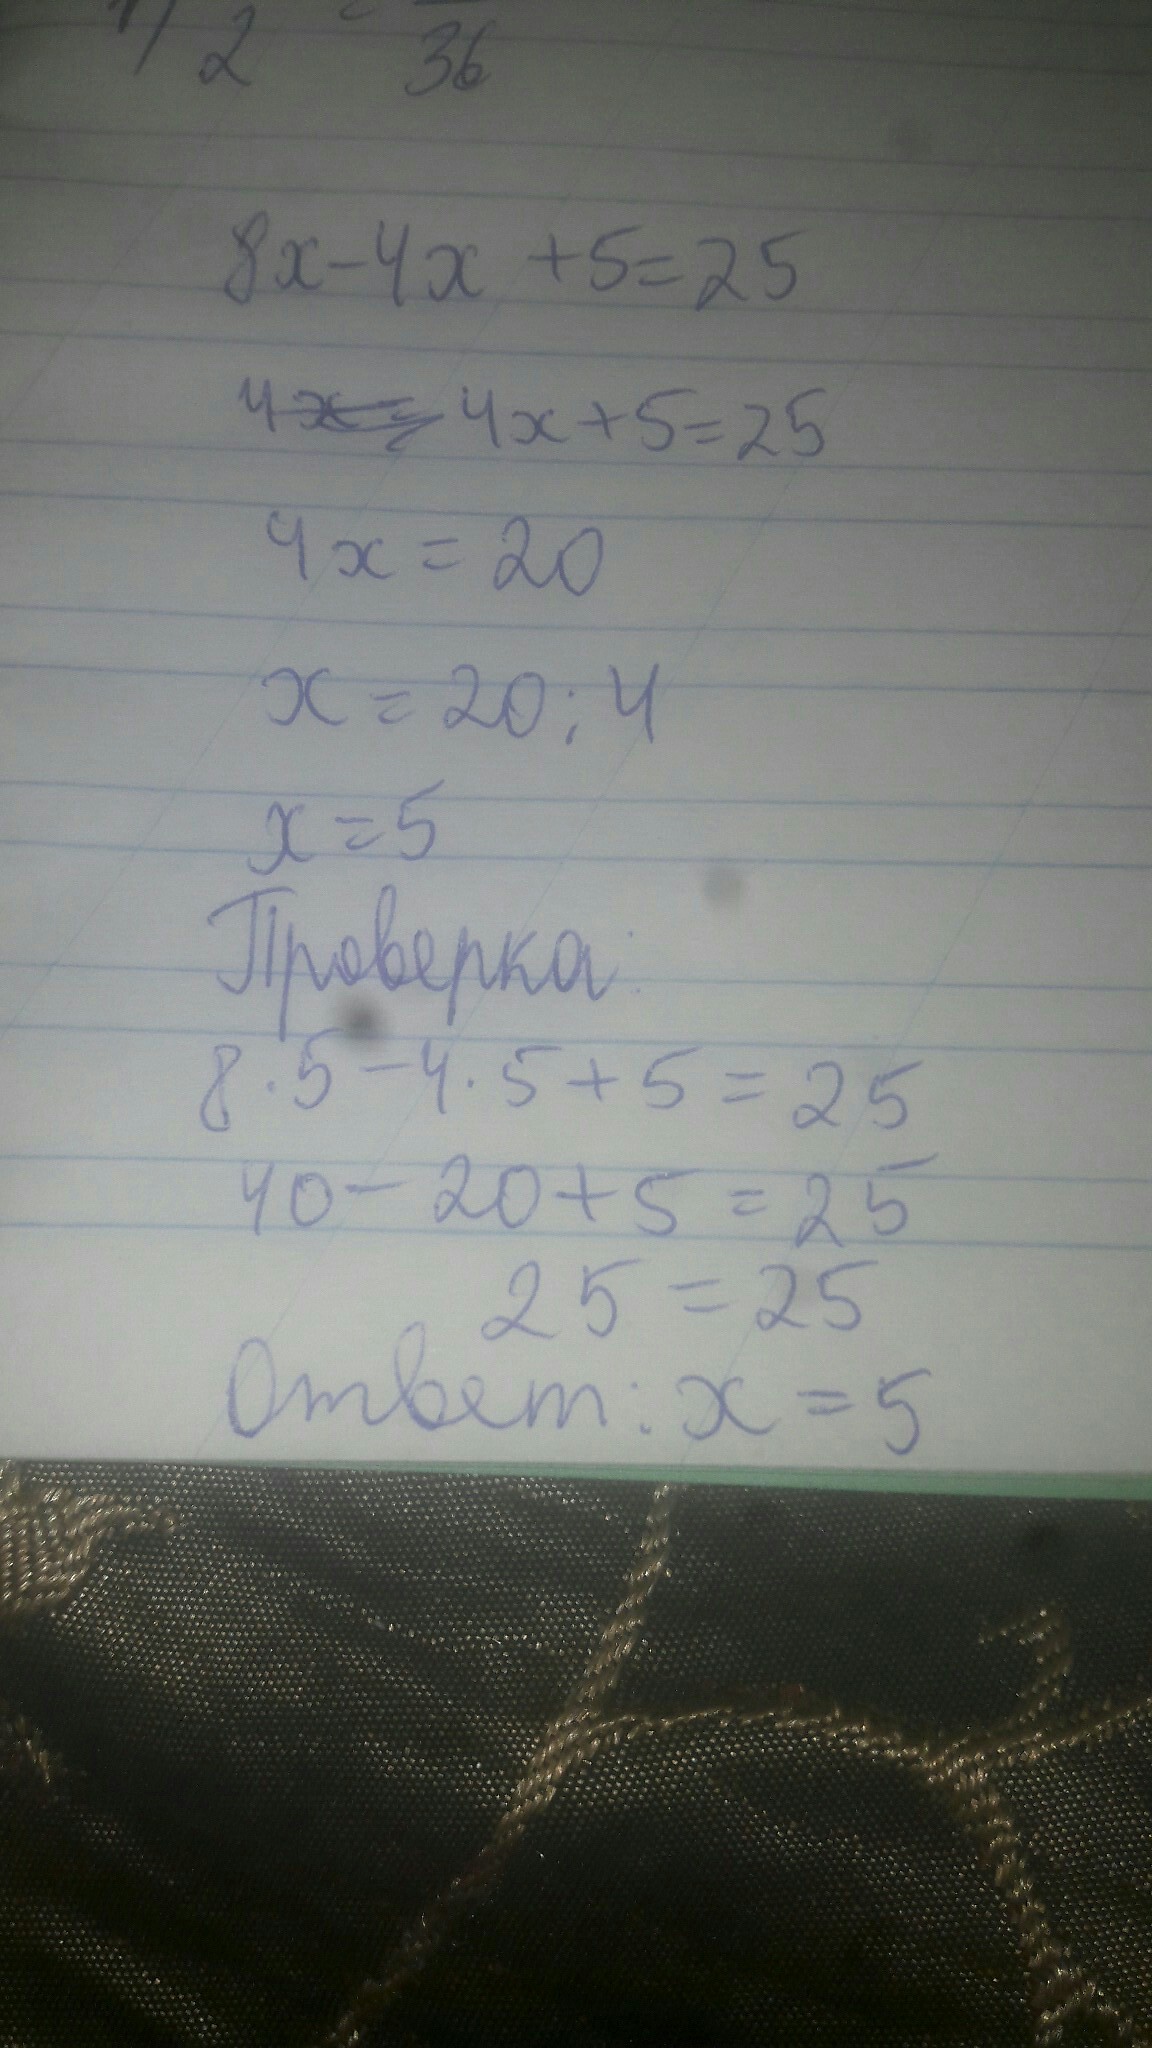 2 = 36
8x-4x +5=25
4x+5=25
4x = 20
x = 20:4
x=5
Проверка:
8·5-4·5+5=25
40-20+5=25
25=25
Ответ: x=5